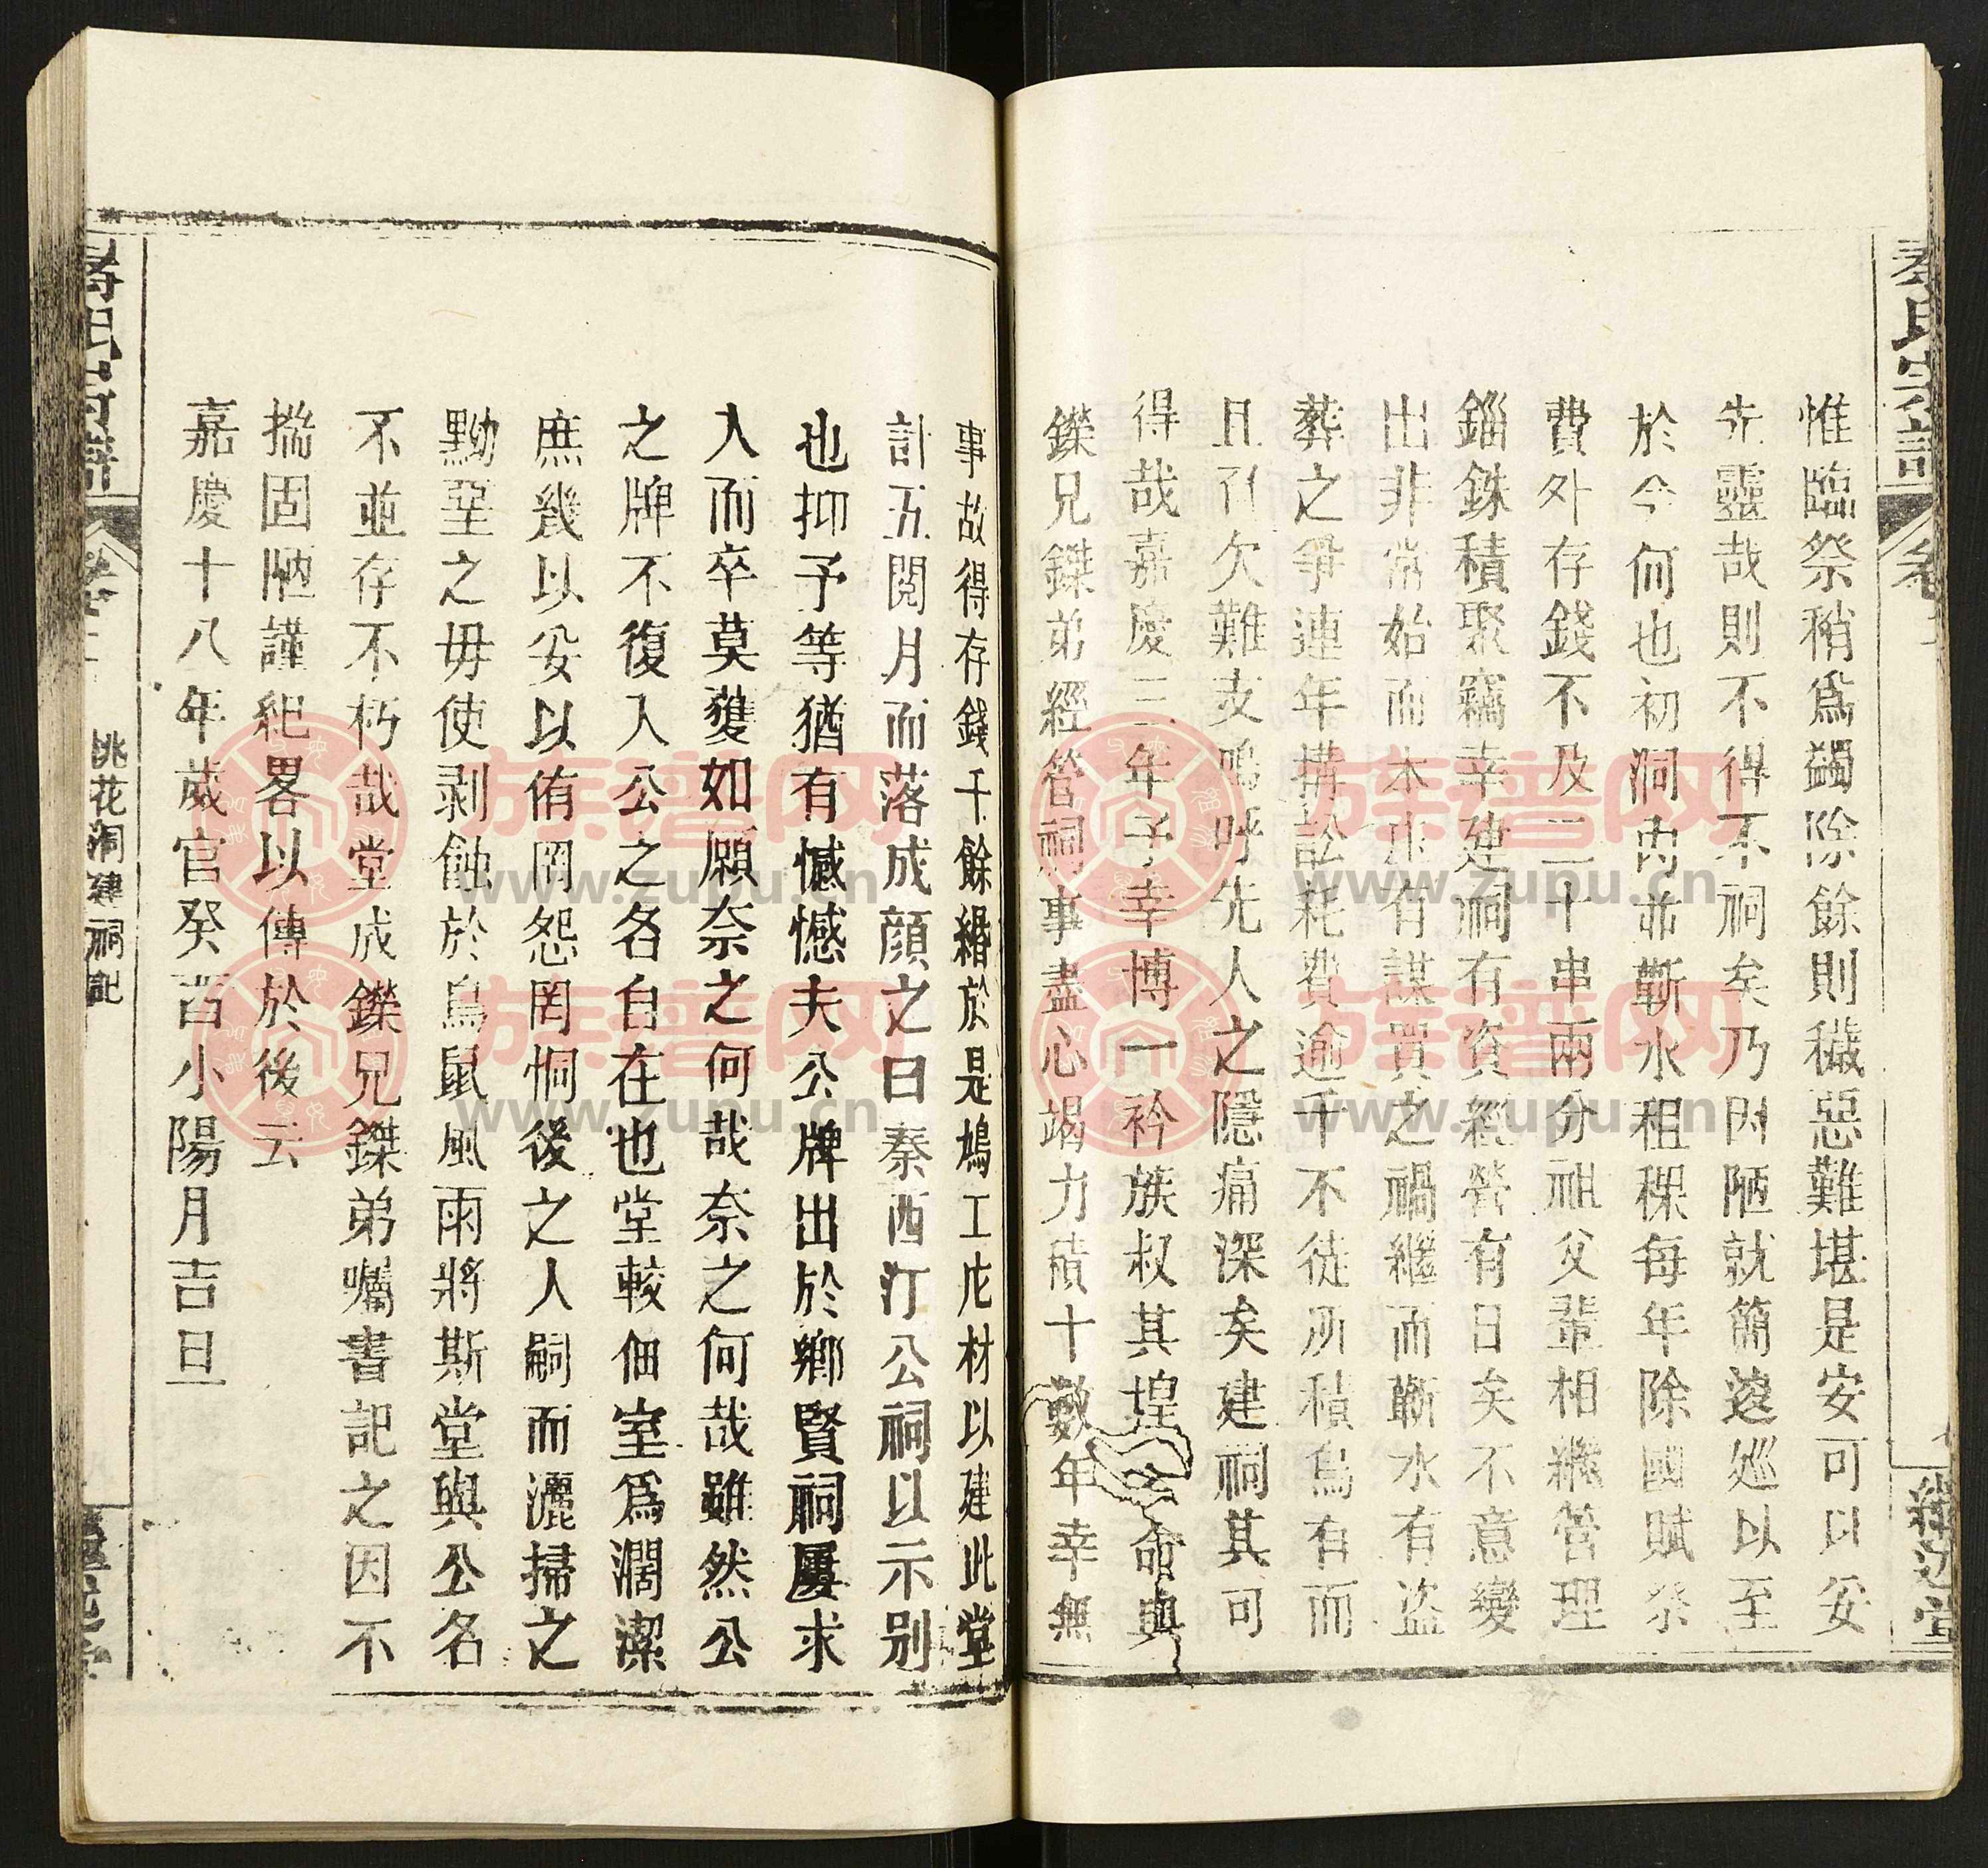 惟臨祭稍爲蠲除餘則穢惡難堪是安可以妥
先靈哉則不得不祠矣乃因陋就簡逡巡以至
於今何也初洞內並蘄水租稞每年除國賦祭
費外存錢不及二十串兩分祖父輩相繼管理
錙銖積聚竊幸建祠有資經營有日矣不意變
出非常始而本庄有謀買之禍繼而蘄水有盜
葬之爭連年搆訟耗費逾千不徒所積烏有而
且有欠難支嗚呼先人之隱痛深矣建祠其可
得哉嘉慶三年予幸博一衿族叔其煌 命與
鑅兄鏫弟經管祠事盡心竭力積十數年幸無
事故得存錢千餘緡於是鳩工庀材以建此堂
計五閱月而落成顏之曰秦西汀公祠以示別
也抑予等猶有憾憾夫公牌出於鄉賢祠屢求
入而卒莫獲如願奈之何哉奈之何哉雖然公
之牌不復入公之名自在也堂較佃室爲濶潔
庶幾以妥以侑罔怨罔恫後之人嗣而灑掃之
黝堊之毋使剥蝕於鳥鼠風雨將斯堂與公名
不並存不朽哉堂成鑅兄鏫弟囑書記之因不
揣固陋謹紀畧以傳於後云
嘉慶十八年歲官癸酉小陽月吉旦
桃花洞建祠記
族譜网
www.zupu.cn
族譜网
www.zupu.cn
族譜网
www.zupu.cn
族譜网
www.zupu.cn